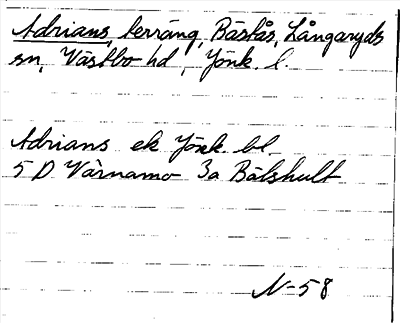 Adrians, terräng, Bästås, Långaryds
sn, Västbo hd, Jönk. l.
Adrians ek Jönk. bl.
5 D Värnamo 3a Bälshult
N-58